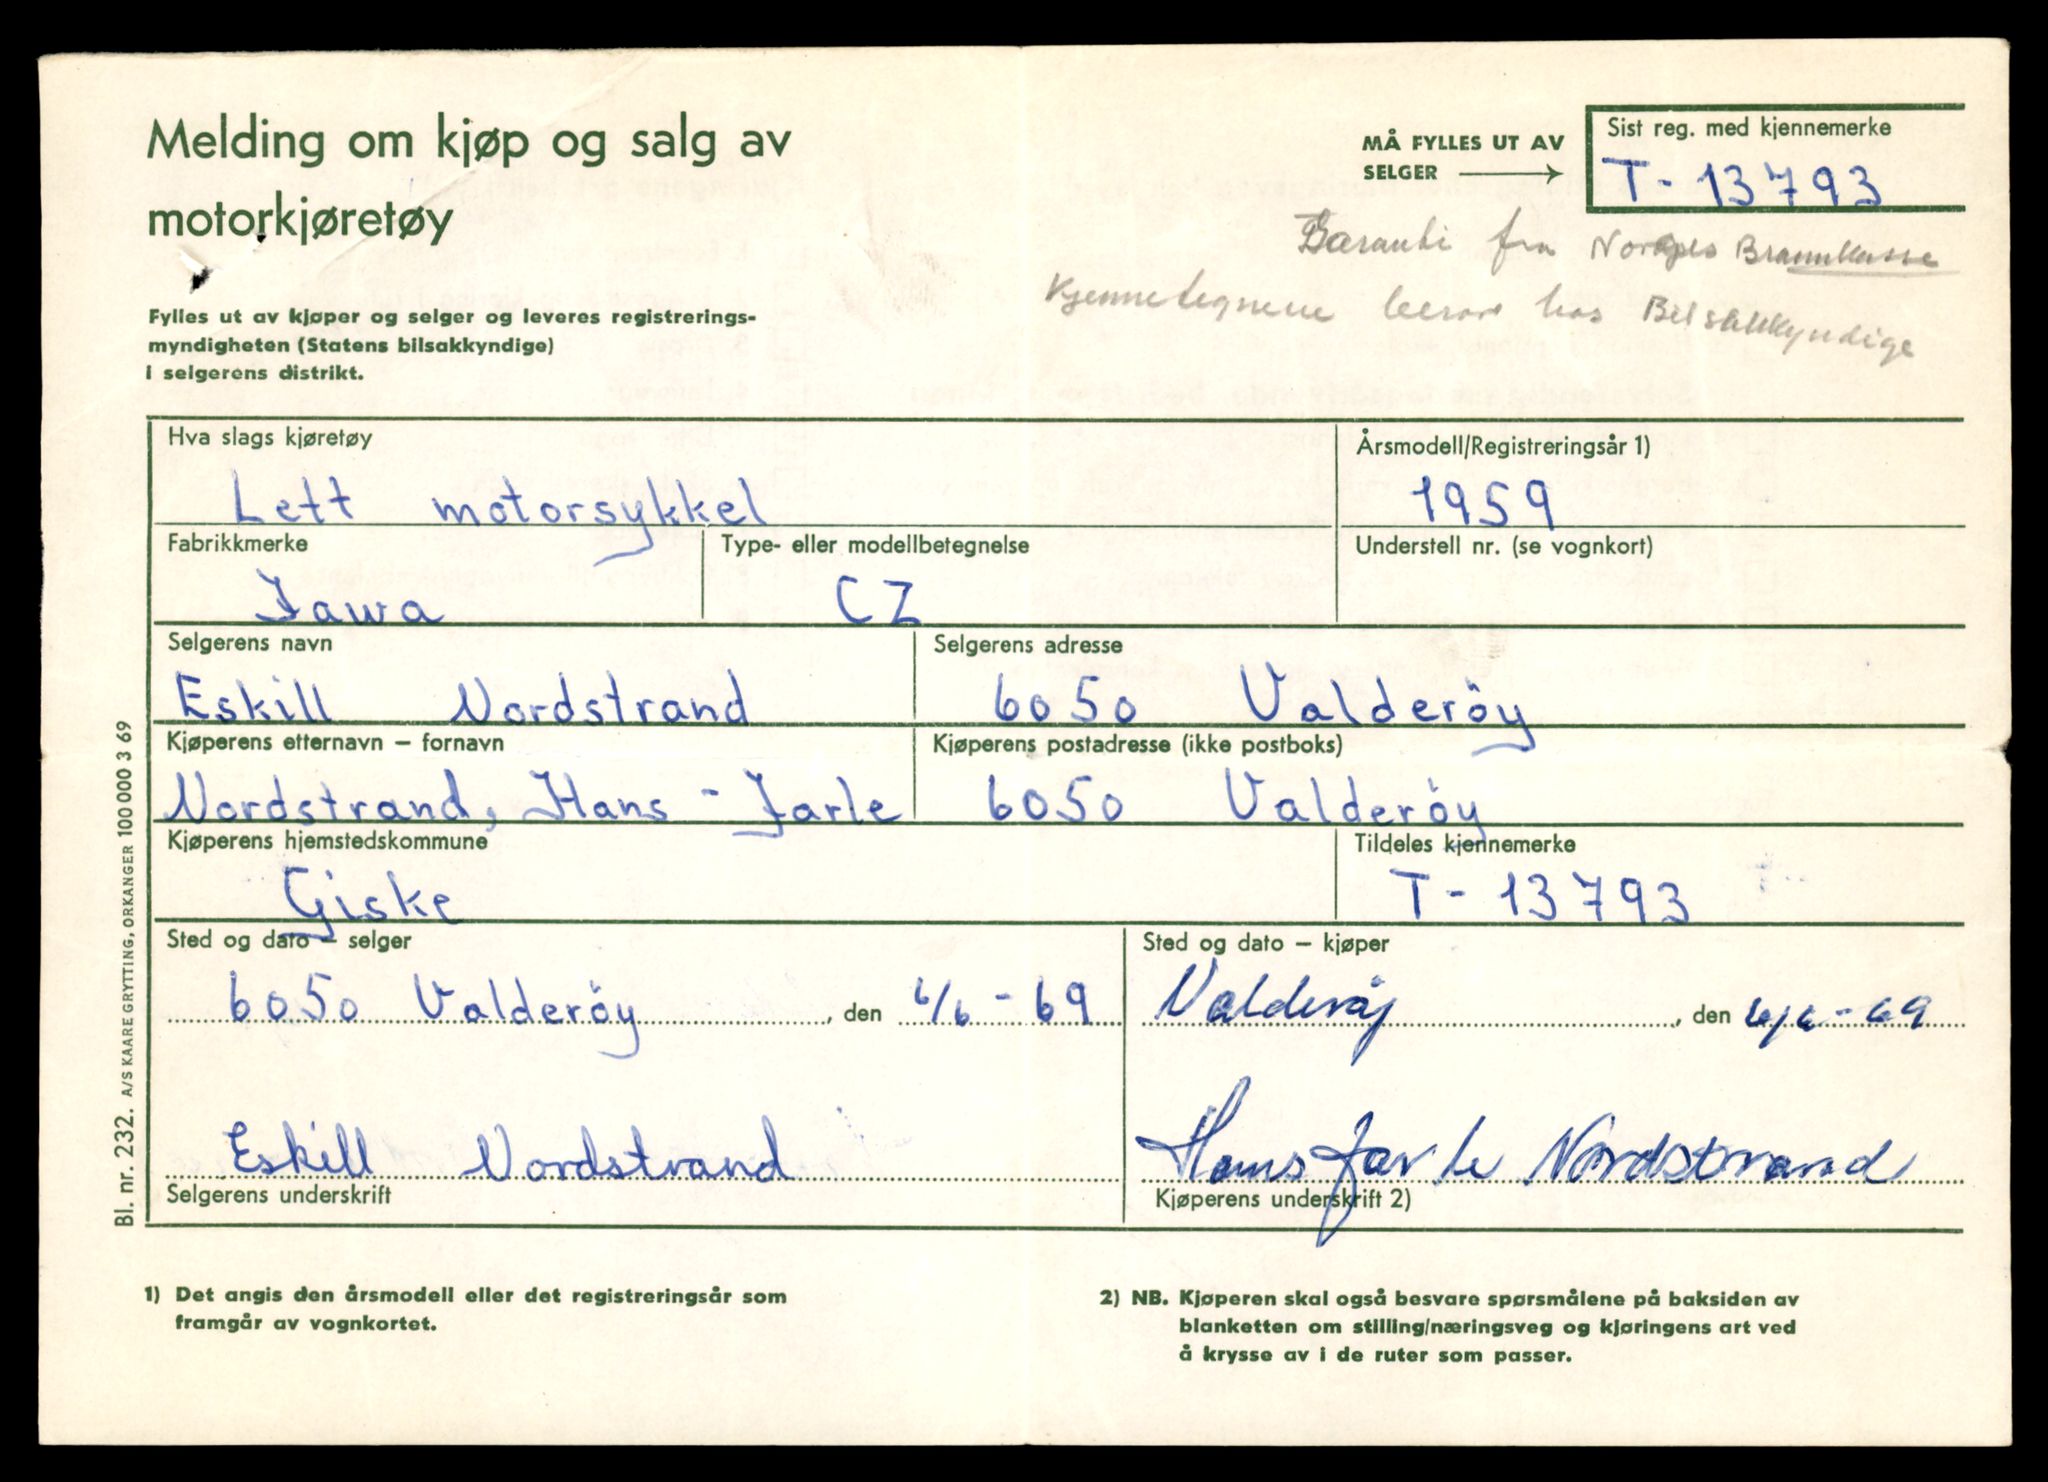 Melding om kjøp og salg av
motorkjøretøy
MÅ FYLLES UT AV
SELGER
Sist reg. med kjennemerke
T - 13793
Garanti fra Norges Brannkasse
Kjennetegnene hos Bilsakkyndige
Fylles ut av kjøper og selger og leveres registrerings-
myndigheten (Statens bilsakkyndige)
i selgerens distrikt.
Hva slags kjøretøy
Lett motorsykkel
Årsmodell/Registreringsår 1)
1959
Fabrikkmerke
Jawa
Type- eller modellbetegnelse
CZ
Understell nr. (se vognkort)
Selgerens navn
Eskill Nordstrand
Selgerens adresse
6050 Valderöy
Kjøperens etternavn – fornavn
Nordstrand, Hans - Jarle
Kjøperens postadresse (ikke postboks)
6050 Valderöy
Kjøperens hjemstedskommune
Giske
Tildeles kjennemerke
T - 13793
Sted og dato – selger
6050 Valderöy, den 6/6 - 69
Sted og dato – kjøper
Valderøy, den 6/6 - 69
Eskill Nordstrand
Selgerens underskrift
Hans Jarle Nordstrand
Kjøperens underskrift 2)
Bl. nr. 232. A/S KAARE GRYTTING, ORKANGER 100 000 3 69
1) Det angis den årsmodell eller det registreringsår som
framgår av vognkortet.
2) NB. Kjøperen skal også besvare spørsmålene på baksiden av
blanketten om stilling/næringsveg og kjøringens art ved
å krysse av i de ruter som passer.